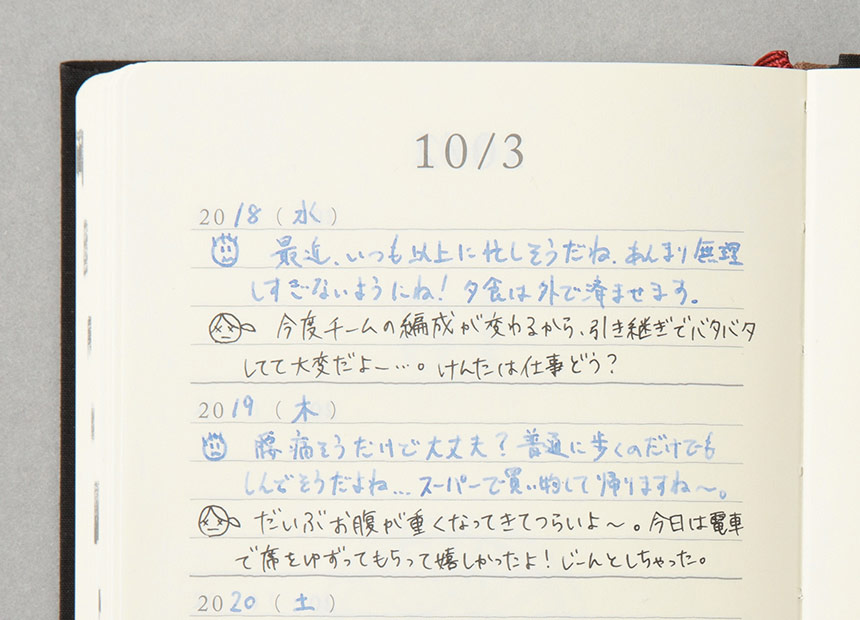 10/3
2018（水）
最近、いつも以上に忙しそうだね、あんまり無理
しすぎないようにね！夕食は外で済ませます。
今度チームの編成が変わるから、引き継ぎでバタバタ
してて大変だよー…。けんたは仕事どう？
2019（木）
腰痛そうだけど大丈夫？普通に歩くのだけでも
しんどそうだよね…スーパーで買い物して帰りますね〜。
だいぶお腹が重くなってきてつらいよ〜。今日は電車
で席をゆずってもらって嬉しかったよ！じーんとしちゃった。
2020（土）